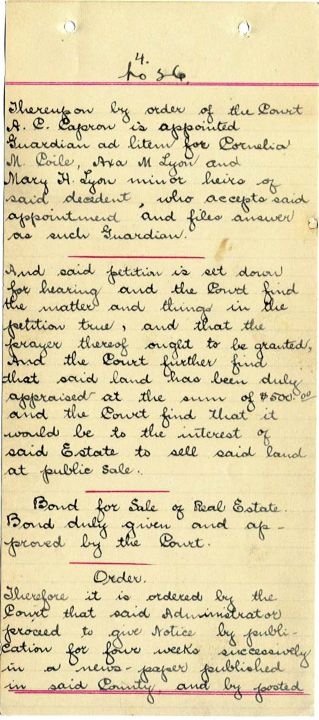 4.
No 36,
Thereupon by order of the Court
A. C. Capron is appointed
Guardian ad litem for Cornelia
M. Poile, Ava M Lyon and
Mary H. Lyon minor heirs of
said decedent, who accepts said
appointment and files answer
as such Guardian.
And said petition is set down
for hearing and the Court find
the matter and things in the
petition true, and that the
prayer thereof ought to be granted,
And the Court further find
that said land has been duly
appraised at the sum of $500.00
and the Court find that it
would be to the interest of
said Estate to sell said land
at public sale.
Bond for Sale of Real Estate.
Bond duly given and ap-
proved by the Court.
Order.
Therefore it is ordered by the
Court that said Administrator
proceed to give Notice by publi-
cation for four weeks successively
in a news-paper published
in said County, and by posted